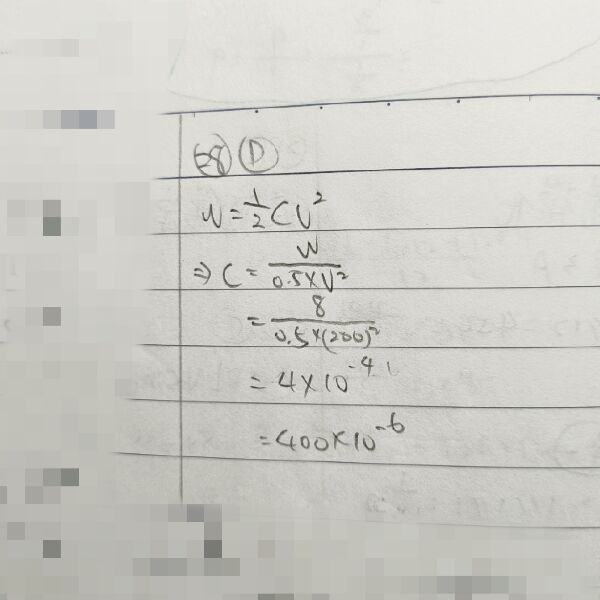 28 D
W = 1/2 CV²
⇒ C = W / 0.5×V²
= 8 / 0.5×(200)²
= 4×10⁻⁴
= 400×10⁻⁶